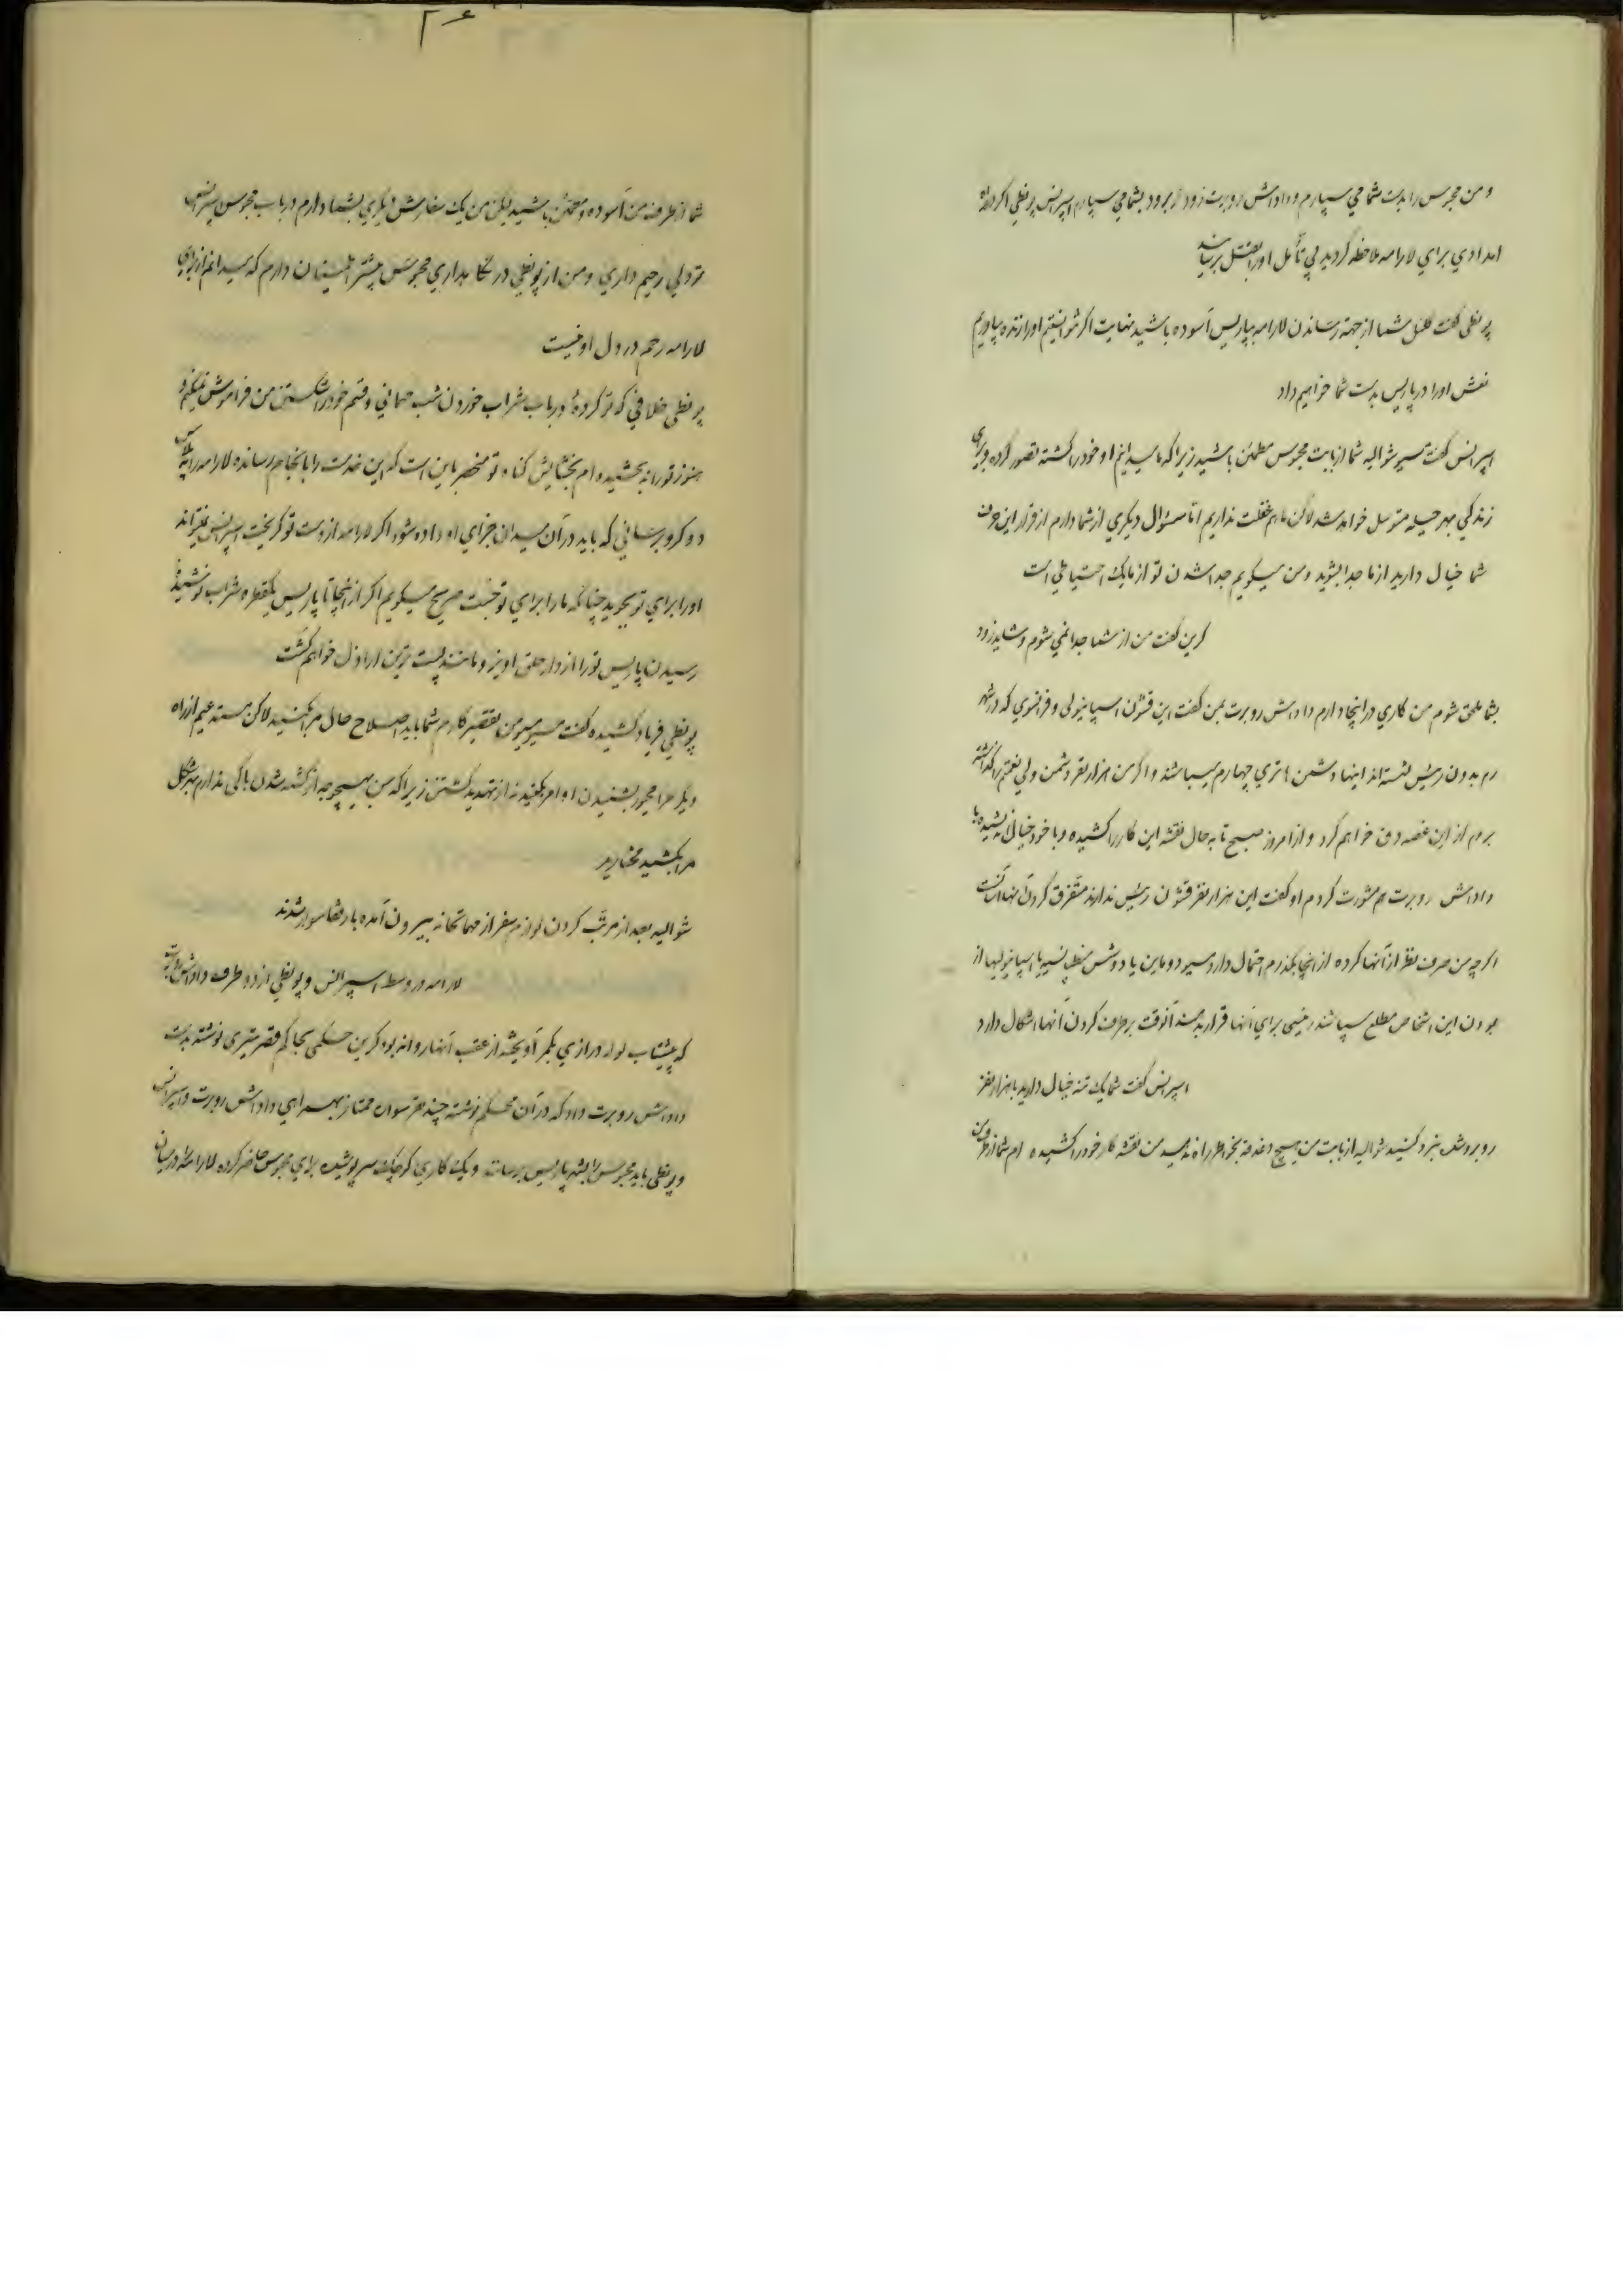 و من محبوس را بدست شما می سپارم و داداش روبرت زود تر برود بشما می سپارم اسپرانس پونطی اگر دیدید
امدادی برای لارامه ملاحظه کردید بی تأمل او را بقتل برسانید
پونطی گفت کفیل شما از جهته رساندن لارامه بپاریس آسوده باشید نهایت اگر نتوانستیم او را زنده بیاوریم
نعش او را در پاریس بدست شما خواهیم داد
اسپرانس گفت مسیر شوالیه شما از بابت محبوس مطمئن باشید زیرا که ما میدانیم او خود را کشته تصور کرده و برای
زندگی بهر حیله متوسل خواهد شد لاکن ما هم غفلت نداریم اما سئوال دیگری از شما دارم از قرار این حرف
شما خیال دارید از ما جدا بشوید و من میگویم جدا شدن تو از ما یک بی احتیاطی است
کرین گفت من از شما جدا نمی شوم و شاید زود
بشما ملحق شوم من کاری در اینجا دارم داداش روبرت بمن گفت این قشون اسپانیولی و فرانسوی که در شهر
رم بدون رئیس نشسته اند اینها دشمن هانری چهارم میباشند و اگر من هزار نفر دشمن ولی نعمتم را گذاشته
بروم از این غصه دق خواهم کرد و از امروز صبح تا به حال نقشه این کار را کشیده و با خود خیال اندیشیده با
داداش روبرت هم مشورت کردم او گفت این هزار نفر قشون رئیس ندارند متفرق کردن آنها آسانست
اگر چه من صرف نظر از آنها کرده از اینجا بگذرم احتمال دارد مسیو دوماین یا دوشس منطپنسیه یا اسپانیولیها از
بودن این اشخاص مطلع میباشند رئیسی برای آنها قرار بدهند آنوقت برطرف کردن آنها اشکال دارد
اسپرانس گفت شما یک تنه خیال دارید با هزار نفر
روبرو شده نبرد کنید شوالیه از بابت من هیچ دغدغه بخواطر راه ندهید من نقشه کار خود را کشیده ام شما از طرف من
شما از طرف من آسوده و مطمئن باشید لیکن من یک سفارش دیگری بشما دارم در باب محبوس اسپرانس
تو دلی رحیم داری و من از پونطی در نگاهداری محبوس بیشتر اطمینان دارم که میدانم از برای
لارامه رحم در دل او نیست
پونطی خلافی که تو کرده و در باب شراب خوردن شب مهمانی و قسم خود را شکستن من فراموش نمیکنم و
هنوز تو را نه بخشیده ام بخشایش گناه تو منحصر باین است که این خدمت را بانجام رسانده لارامه را به پلاس
دو کرو برسانی که باید در آن میدان جزای او داده شود اگر لارامه از دست تو گریخت اسپرانس نمیتواند
او را برای تو بجوید چنانکه ما را برای تو جست صریح میگویم اگر از اینجا تا پاریس یکقطره شراب نوشیدی
رسیدن پاریس تو را از دار حلق آویز و مانند پست ترین اراذل خواهم کشت
پونطی فریاد کشیده گفت مسیر من تقصیر کارم شما باید اصلاح حال مرا بکنید لاکن مستدعیم از راه
دیگر مرا مجبور بشنیدن اوامر بکنید نه از تهدید کشتن زیرا که من بهیچوجه از کشته شدن باکی ندارم بهر شکل
مرا بکشید مختارید
شوالیه بعد از مرتب کردن لوازم سفر از مهمانخانه بیرون آمده با رفقا سوار شدند
لارامه در وسط اسپرانس و پونطی از دو طرف داداش روبرت
که پیشتاب لوله درازی بکمر آویخته از عقب آنها روانه بود کرین حکمی بحاکم قصر متبری نوشته بدست
داداش روبرت داد که در آن حکم نوشته چند نفر سواره ممتاز بهمراهی داداش روبرت و اسپرانس
و پونطی باید محبوس را بشهر پاریس برسانند و یک کاری کوچک سر پوشیده برای محبوس حاضر کرده لارامه را در میان